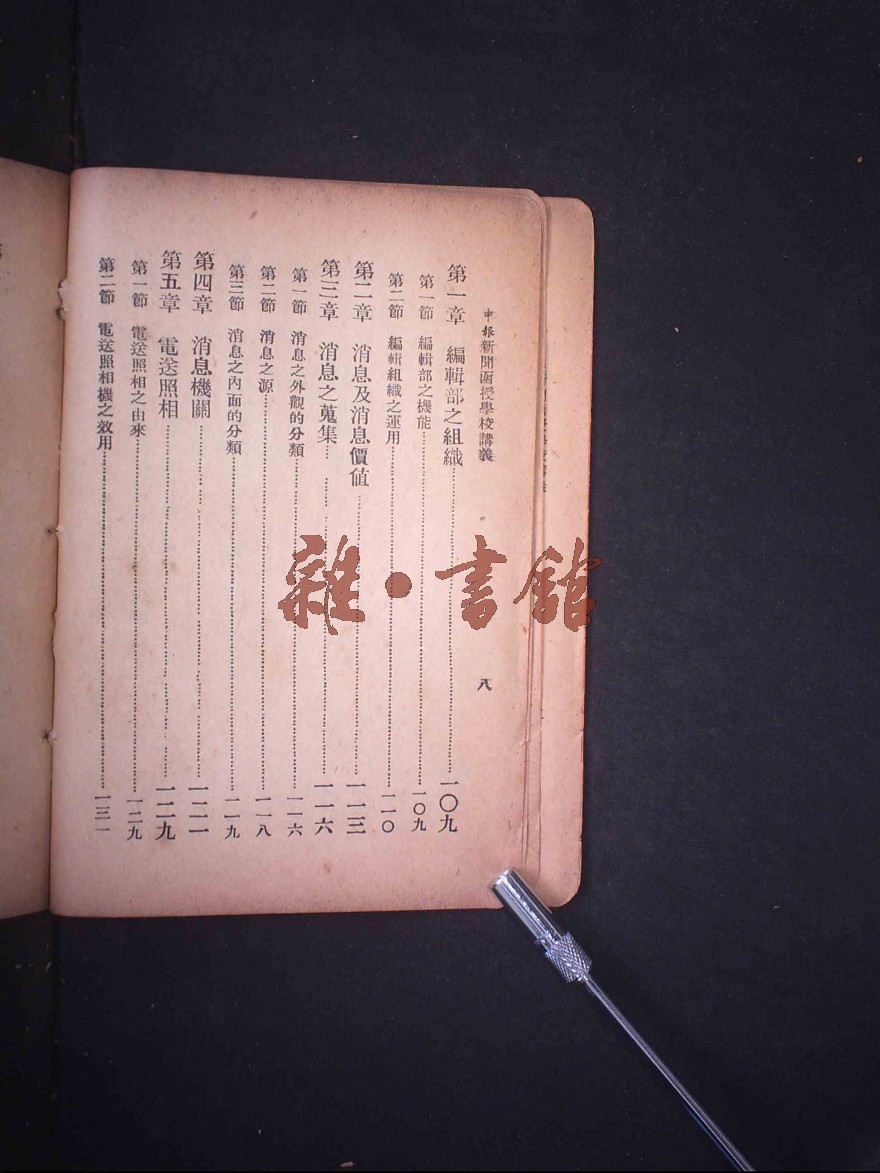 申報新聞函授學校講義
八
第一章 編輯部之組織………一〇九
第一節 編輯部之機能………一〇九
第二節 編輯組織之運用………一一〇
第二章 消息及消息價值………一一三
第三章 消息之蒐集………一一六
第一節 消息之外觀的分類………一一六
第二節 消息之源………一一八
第三節 消息之內面的分類………一一九
第四章 消息機關………一二一
第五章 電送照相………一二九
第一節 電送照相之由來………一二九
第二節 電送照相機之效用………一三一
雜·書館